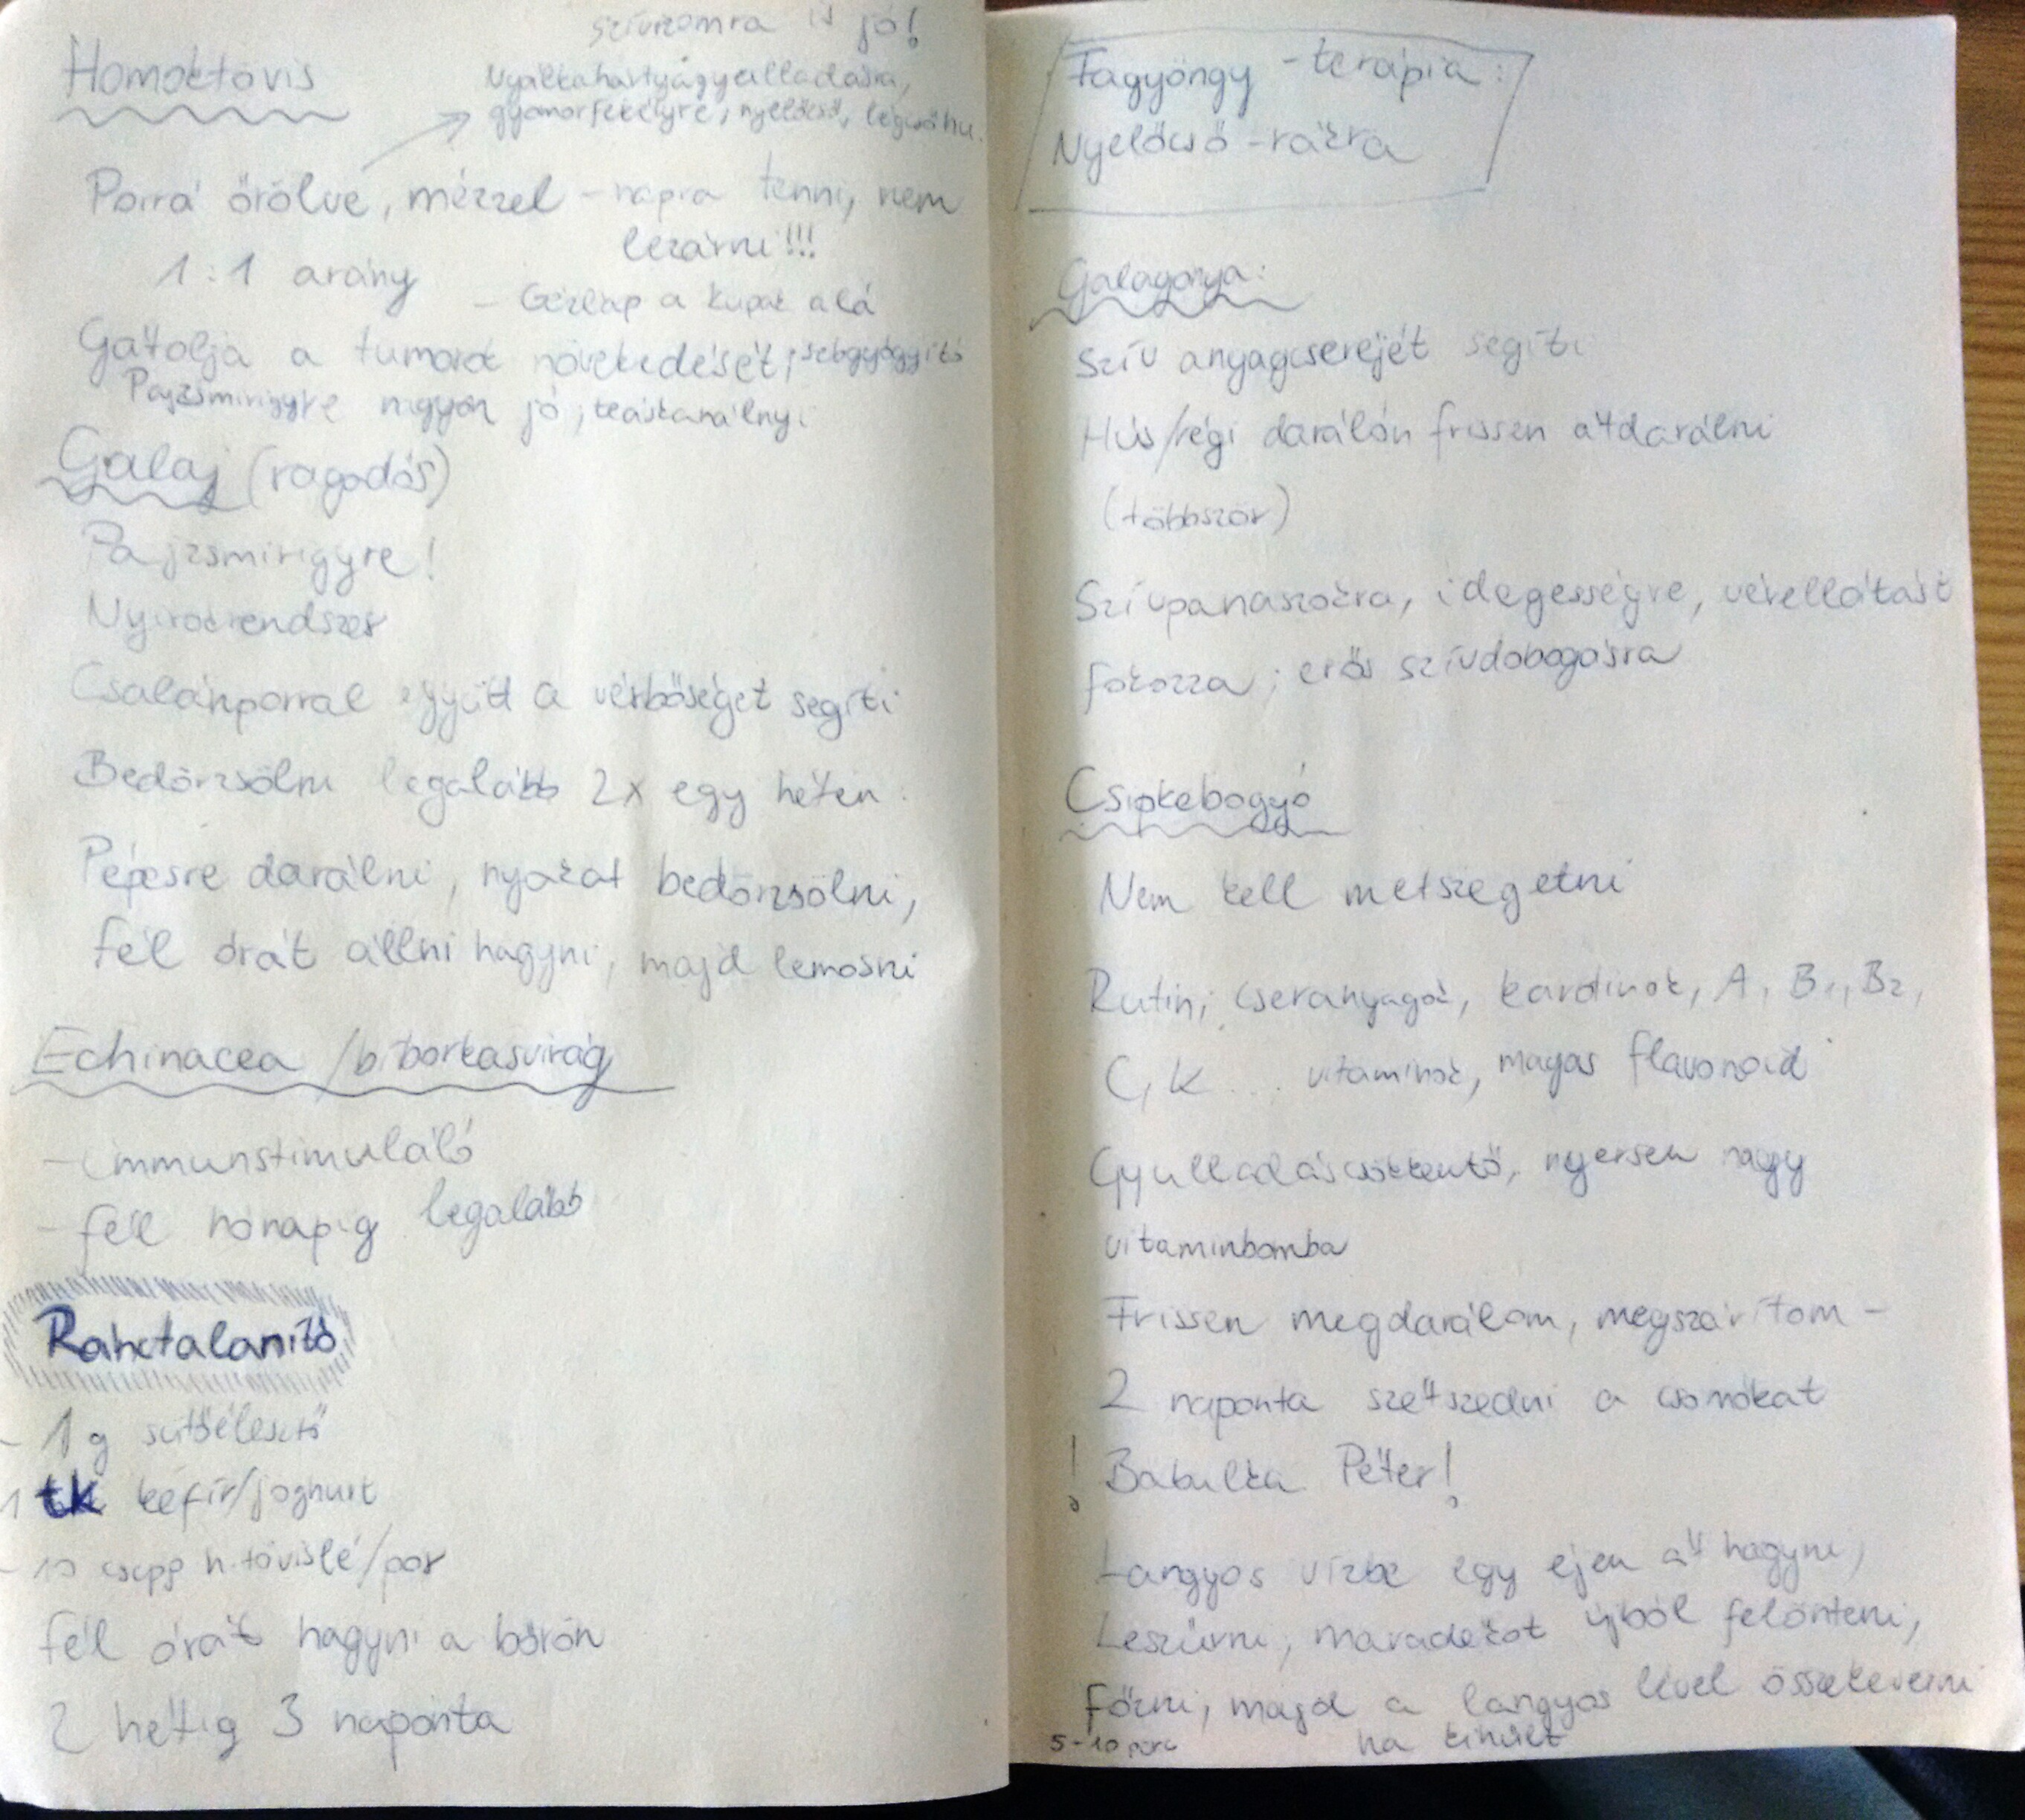 Homoktövis
szívizomra is jó!
Nyálkahártyagyulladásra,
gyomorfekélyre, nyelőcső, légcsőhu.
Porrá őrölve, mézzel – napra tenni, nem
lezárni!!!
1:1 arány
– Gézlap a kupak alá
Gátolja a tumorok növekedését; sebgyógyító
Pajzsmirigyre nagyon jó, teáskanálnyi
Galaj (ragadós)
Pajzsmirigyre!
Nyirokrendszer
Csalánporral együtt a vérbőséget segíti
Bedörzsölni legalább 2x egy héten.
Pépesre darálni, nyakat bedörzsölni,
fél órát állni hagyni, majd lemosni
Echinacea /bíborkasvirág
– immunstimuláló
– fél hónapig legalább
Ránctalanító
– 1 g sütőélesztő
1 tk kefír/joghurt
– 10 csepp h.tövislé/por
fél órát hagyni a bőrön
2 hétig 3 naponta
Fagyöngy – terápia:
Nyelőcső – rákra
Galagonya:
Szív anyagcseréjét segíti
Hús/régi darálón frissen átdarálni
(többször)
Szívpanaszokra, idegességre, vérellátást
fokozza; erős szívdobogásra
Csipkebogyó
Nem kell metszegetni
Rutin, cseranyagok, karotinok, A, B1, B2,
C, K ... vitaminok, magas flavonoid
Gyulladáscsökkentő, nyersen nagy
vitaminbomba
Frissen megdarálom, megszárítom –
2 naponta szétszedni a csomókat
! Babulka Péter!
Langyos vízbe egy éjen át hagyni,
Leszűrni, maradékot újból felönteni,
főzni, majd a langyos lével összekeverni
5-10 perc
ha kihűlt